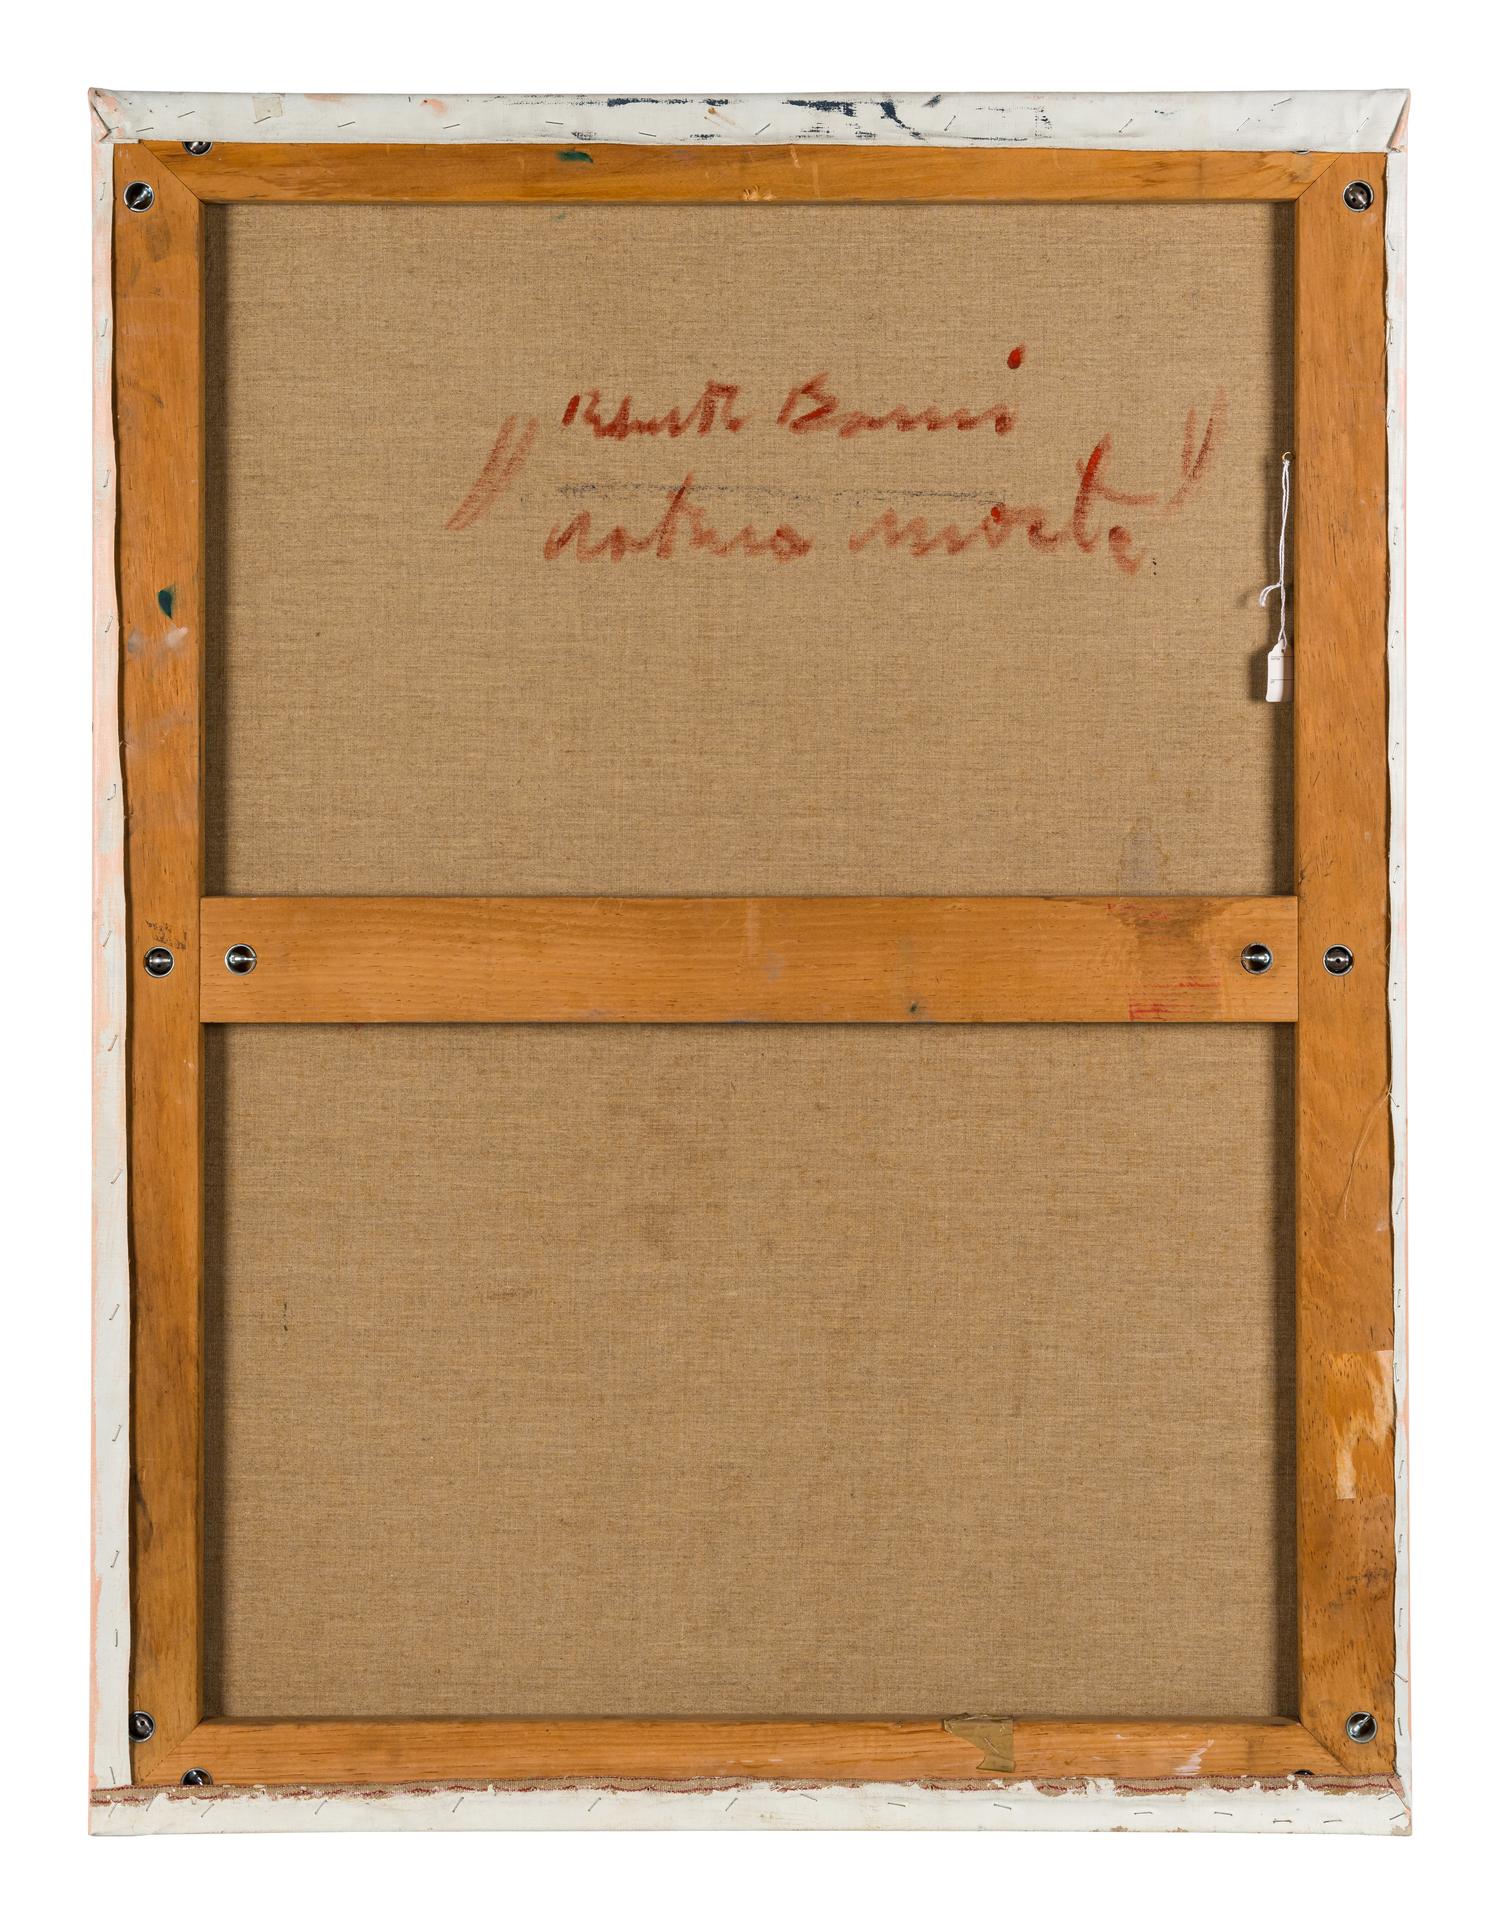 Roberto Barni
" natura morta "